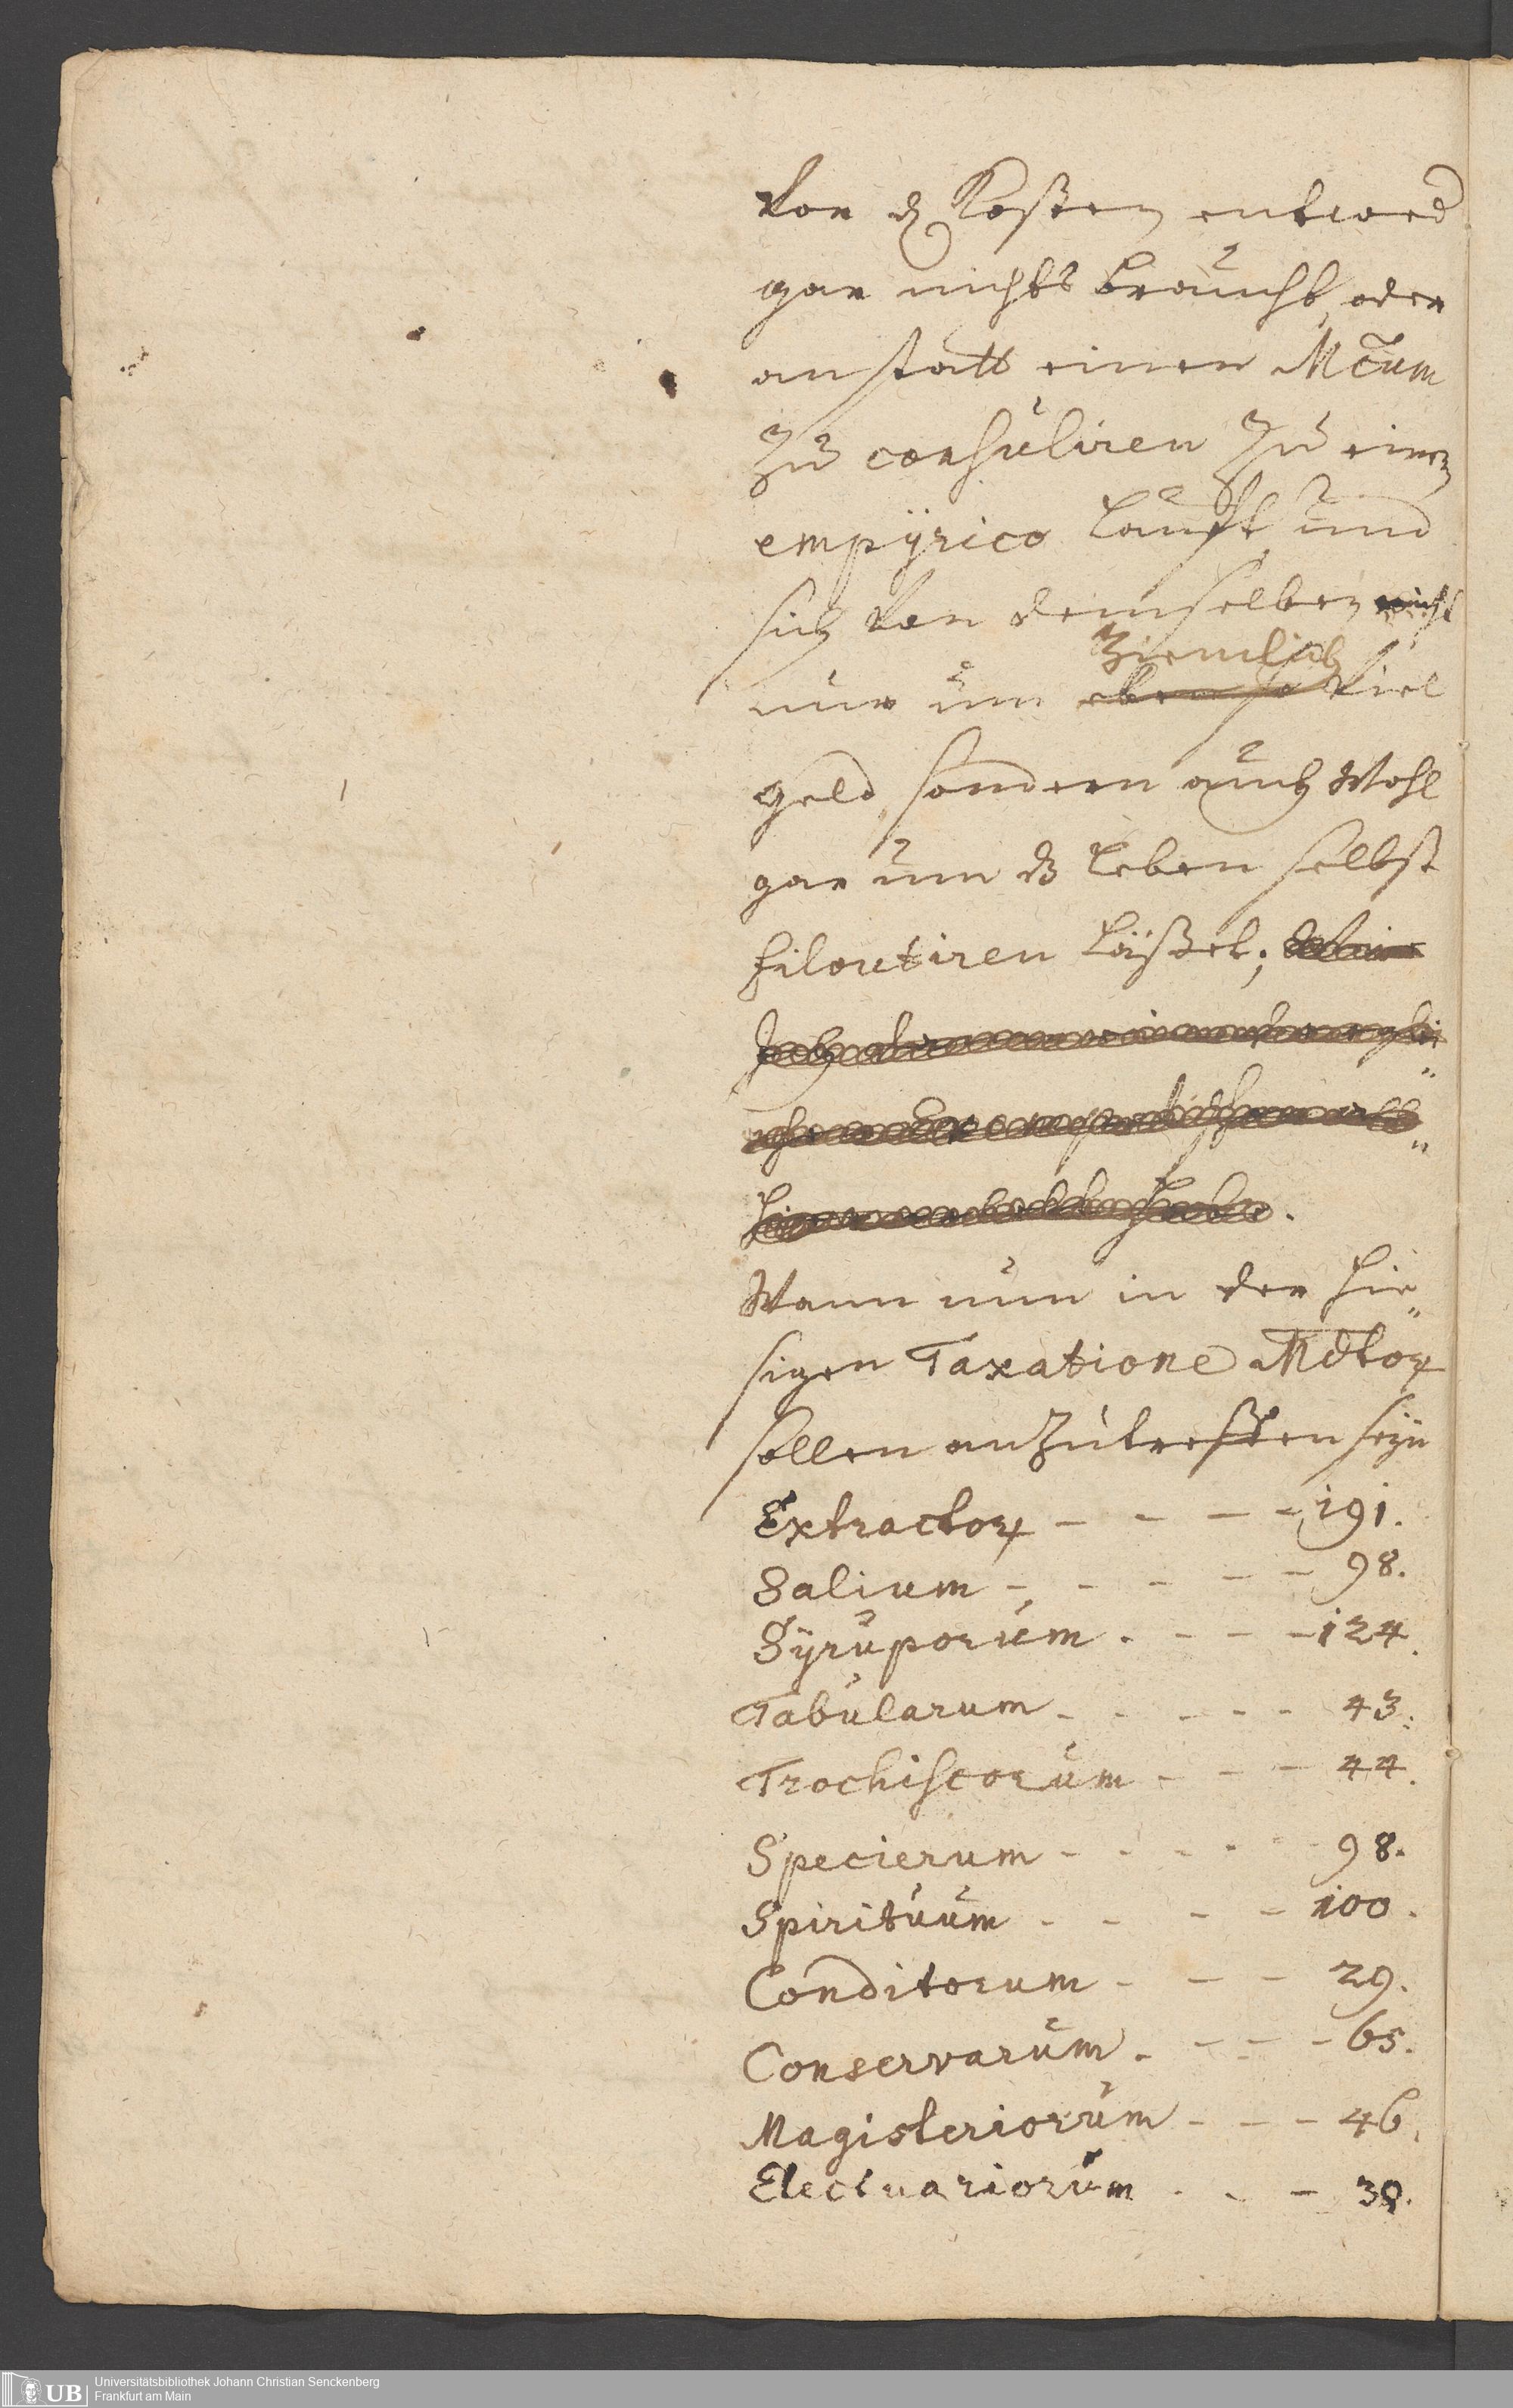 Vor d Kosten entwed
gar nichts braucht, oder
anstatt einen Mcum
zu consuliren zu einen
empÿrico lauft, und
sich von demselben nicht
ziemlich
nur um eben so viel
geld, sondern auch wohl
gar um dz leben selbst
filoutiren läßet;
Wann nun in der hie„
sigen Taxatione Mdtor
sollen anzutreffen seÿn
Extractor - - - - 191.
Salium - - - - - 98.
Sÿruporum - - - - 124.
Tabularum - - - - - 43.
Trochiscorum - - - 44.
Specierum - - - - - 98.
Spirituum - - - - 100.
Conditorum - - - 29.
Conservarum - - - - 65.
Magisteriorum - - - 46.
Electuariorum - - - 39.
UB
Universitätsbibliothek Johann Christian Senckenberg
Frankfurt am Main